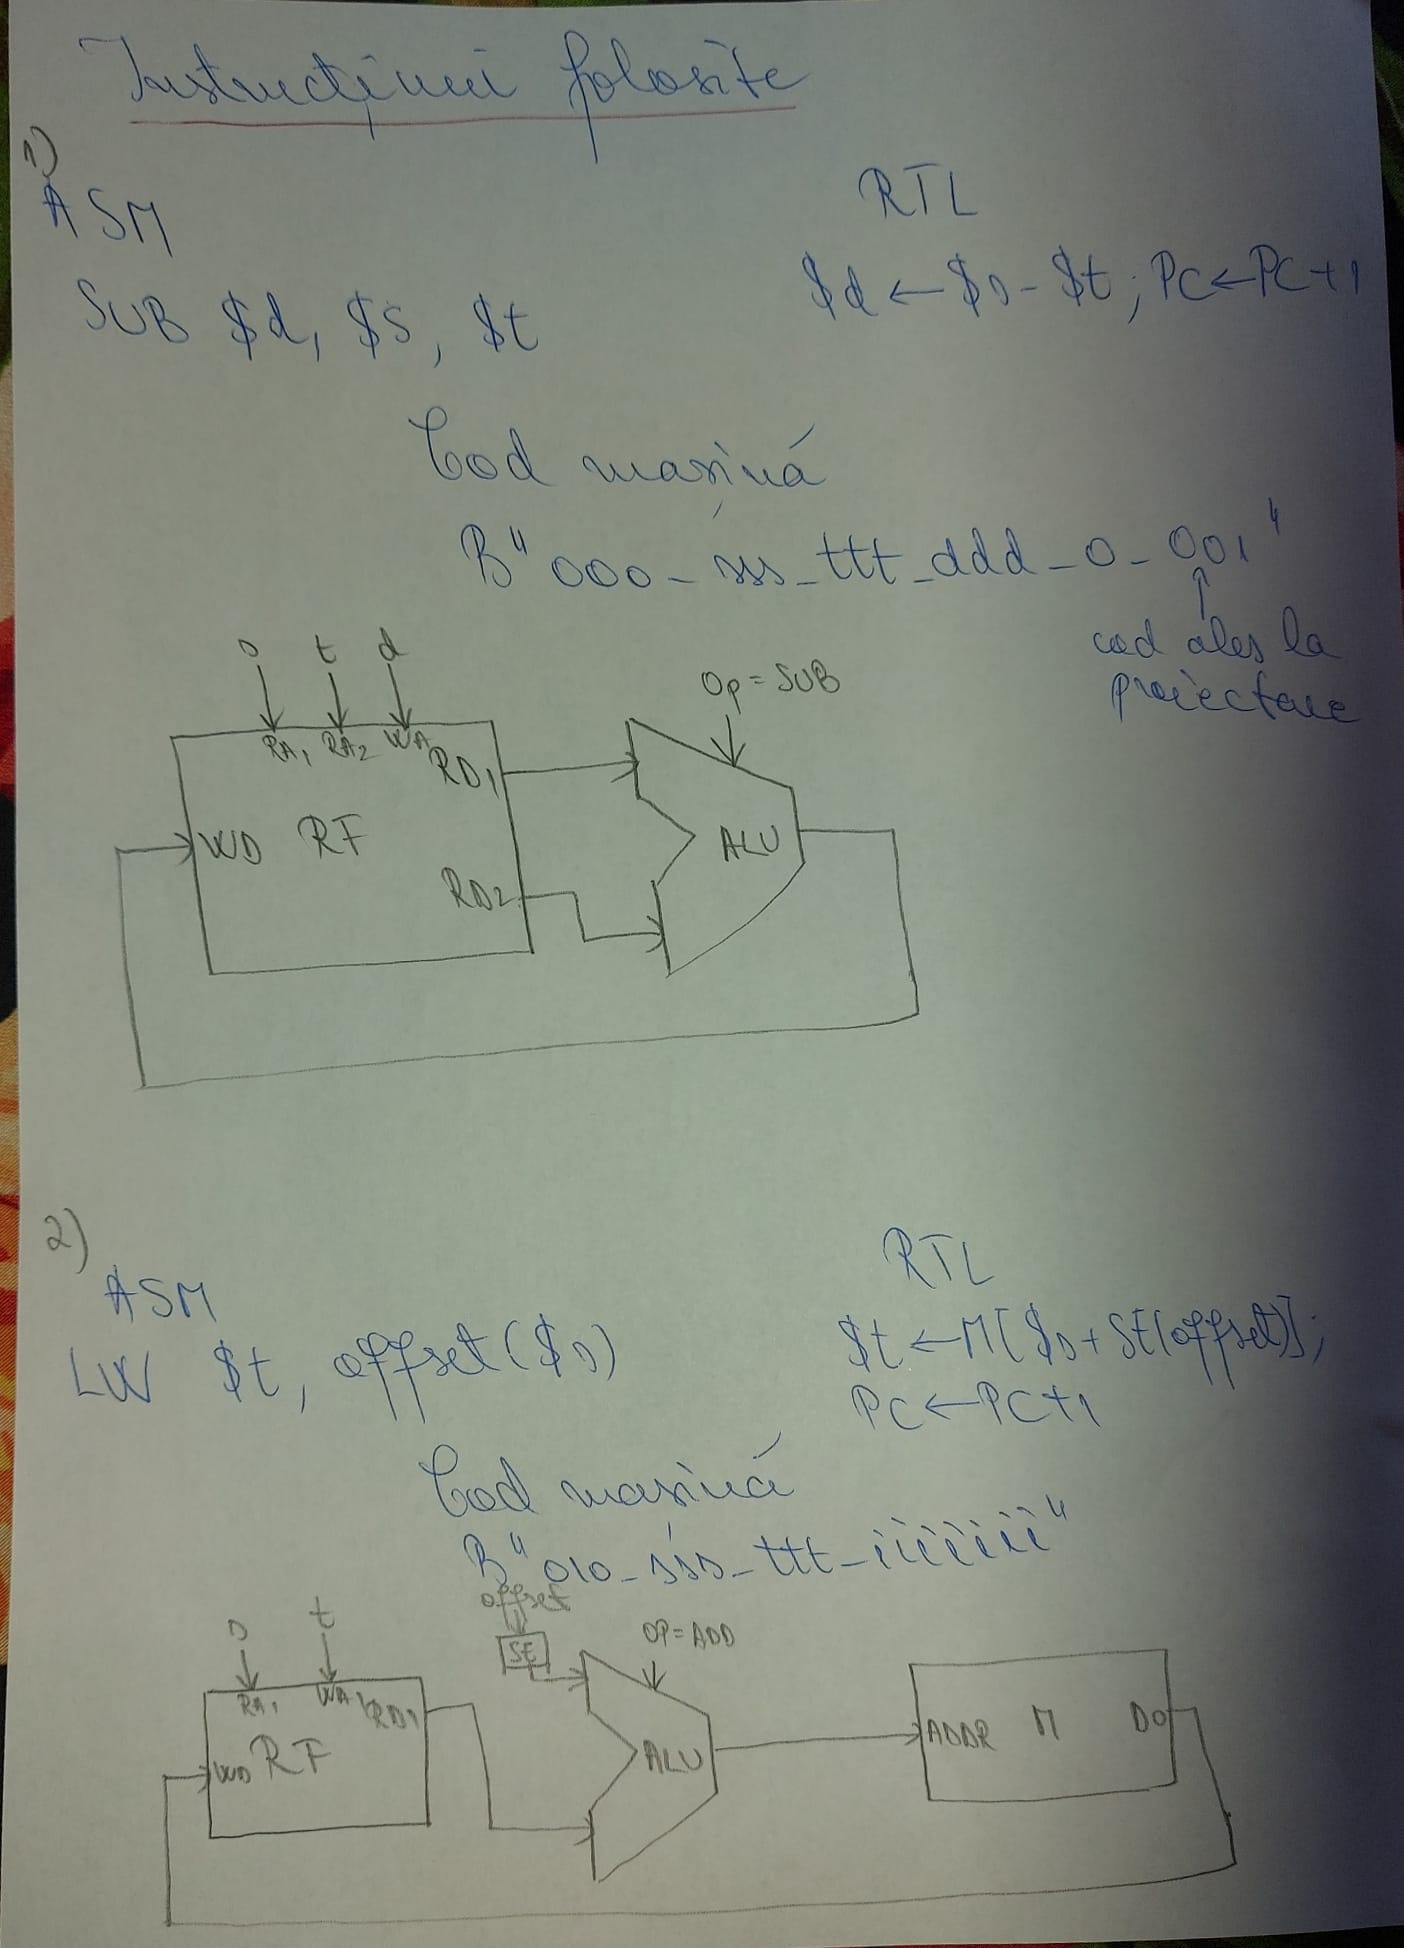 Instrucțiuni folosite
1)
ASM
RTL
SUB $d, $s, $t
$d ← $s - $t; PC ← PC + 1
Cod mașină
B"000_sss_ttt_ddd_0_001"
cod ales la
proiectare
s t d
Op = SUB
RA1 RA2 WA
RD1
WD RF
ALU
RD2
2)
ASM
RTL
LW $t, offset($s)
$t ← M[$s + SE(offset)];
PC ← PC + 1
Cod mașină
B"010_sss_ttt_iiiiiii"
offset
s t
SE
OP = ADD
RA1 WA RD1
WD RF
ALU
ADDR M DO